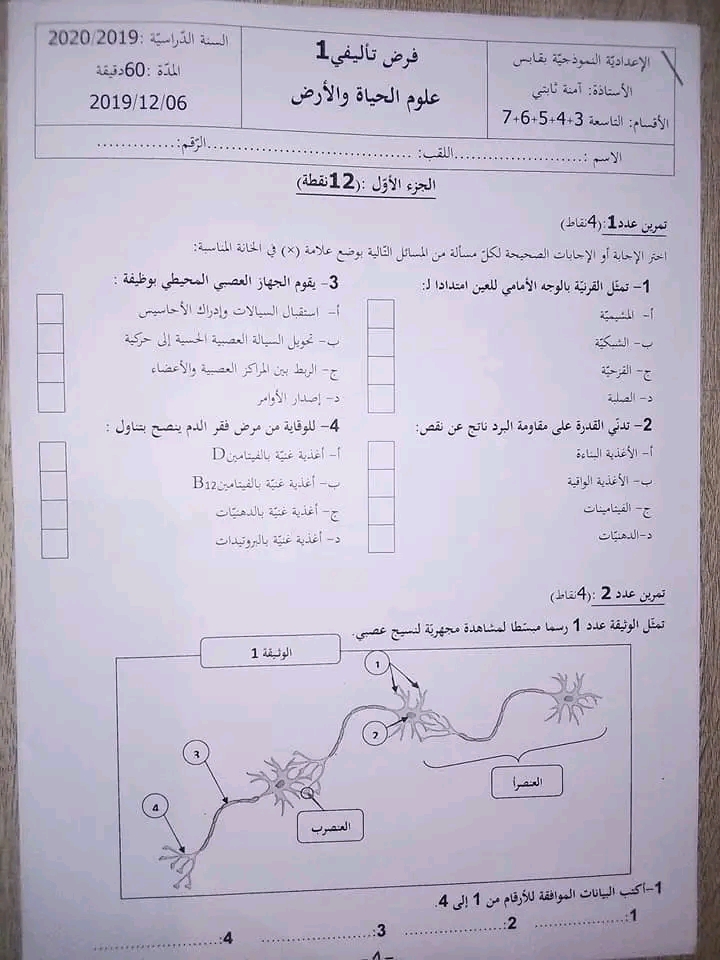 الإعداديّة النموذجيّة بقابس
الأستاذة: آمنة ثابتي
الأقسام: التاسعة 3+4+5+6+7
فرض تأليفي1
علوم الحياة والأرض
السنة الدّراسيّة :2020/2019
المدّة :60دقيقة
2019/12/06
الاسم :......................اللقب: ....................................الرّقم:.............
الجزء الأوّل :(12نقطة)
تمرين عدد1:(4نقاط)
اختر الإجابة أو الإجابات الصحيحة لكلّ مسألة من المسائل التّالية بوضع علامة (×) في الخانة المناسبة:
1- تمثّل القرنيّة بالوجه الأمامي للعين امتدادا لـ:
أ- المشيميّة
ب- الشبكيّة
ج- القزحيّة
د- الصلبة
2- تدنّي القدرة على مقاومة البرد ناتج عن نقص:
أ- الأغذية البناءة
ب- الأغذية الواقية
ج- الفيتامينات
د-الدهنيّات
3- يقوم الجهاز العصبي المحيطي بوظيفة :
أ- استقبال السيالات وإدراك الأحاسيس
ب- تحويل السيالة العصبية الحسية إلى حركية
ج- الربط بين المراكز العصبية والأعضاء
د- إصدار الأوامر
4- للوقاية من مرض فقر الدم ينصح بتناول :
أ- أغذية غنيّة بالفيتامينD
ب- أغذية غنيّة بالفيتامينB12
ج- أغذية غنيّة بالدهنيّات
د- أغذية غنيّة بالبروتيدات
تمرين عدد 2 :(4نقاط)
تمثّل الوثيقة عدد 1 رسما مبسّطا لمشاهدة مجهريّة لنسيج عصبي.
الوثيقة 1
1
2
3
4
العنصرأ
العنصرب
1-أكتب البيانات الموافقة للأرقام من 1 إلى 4.
1: ........................2: ........................3: ........................4: ........................